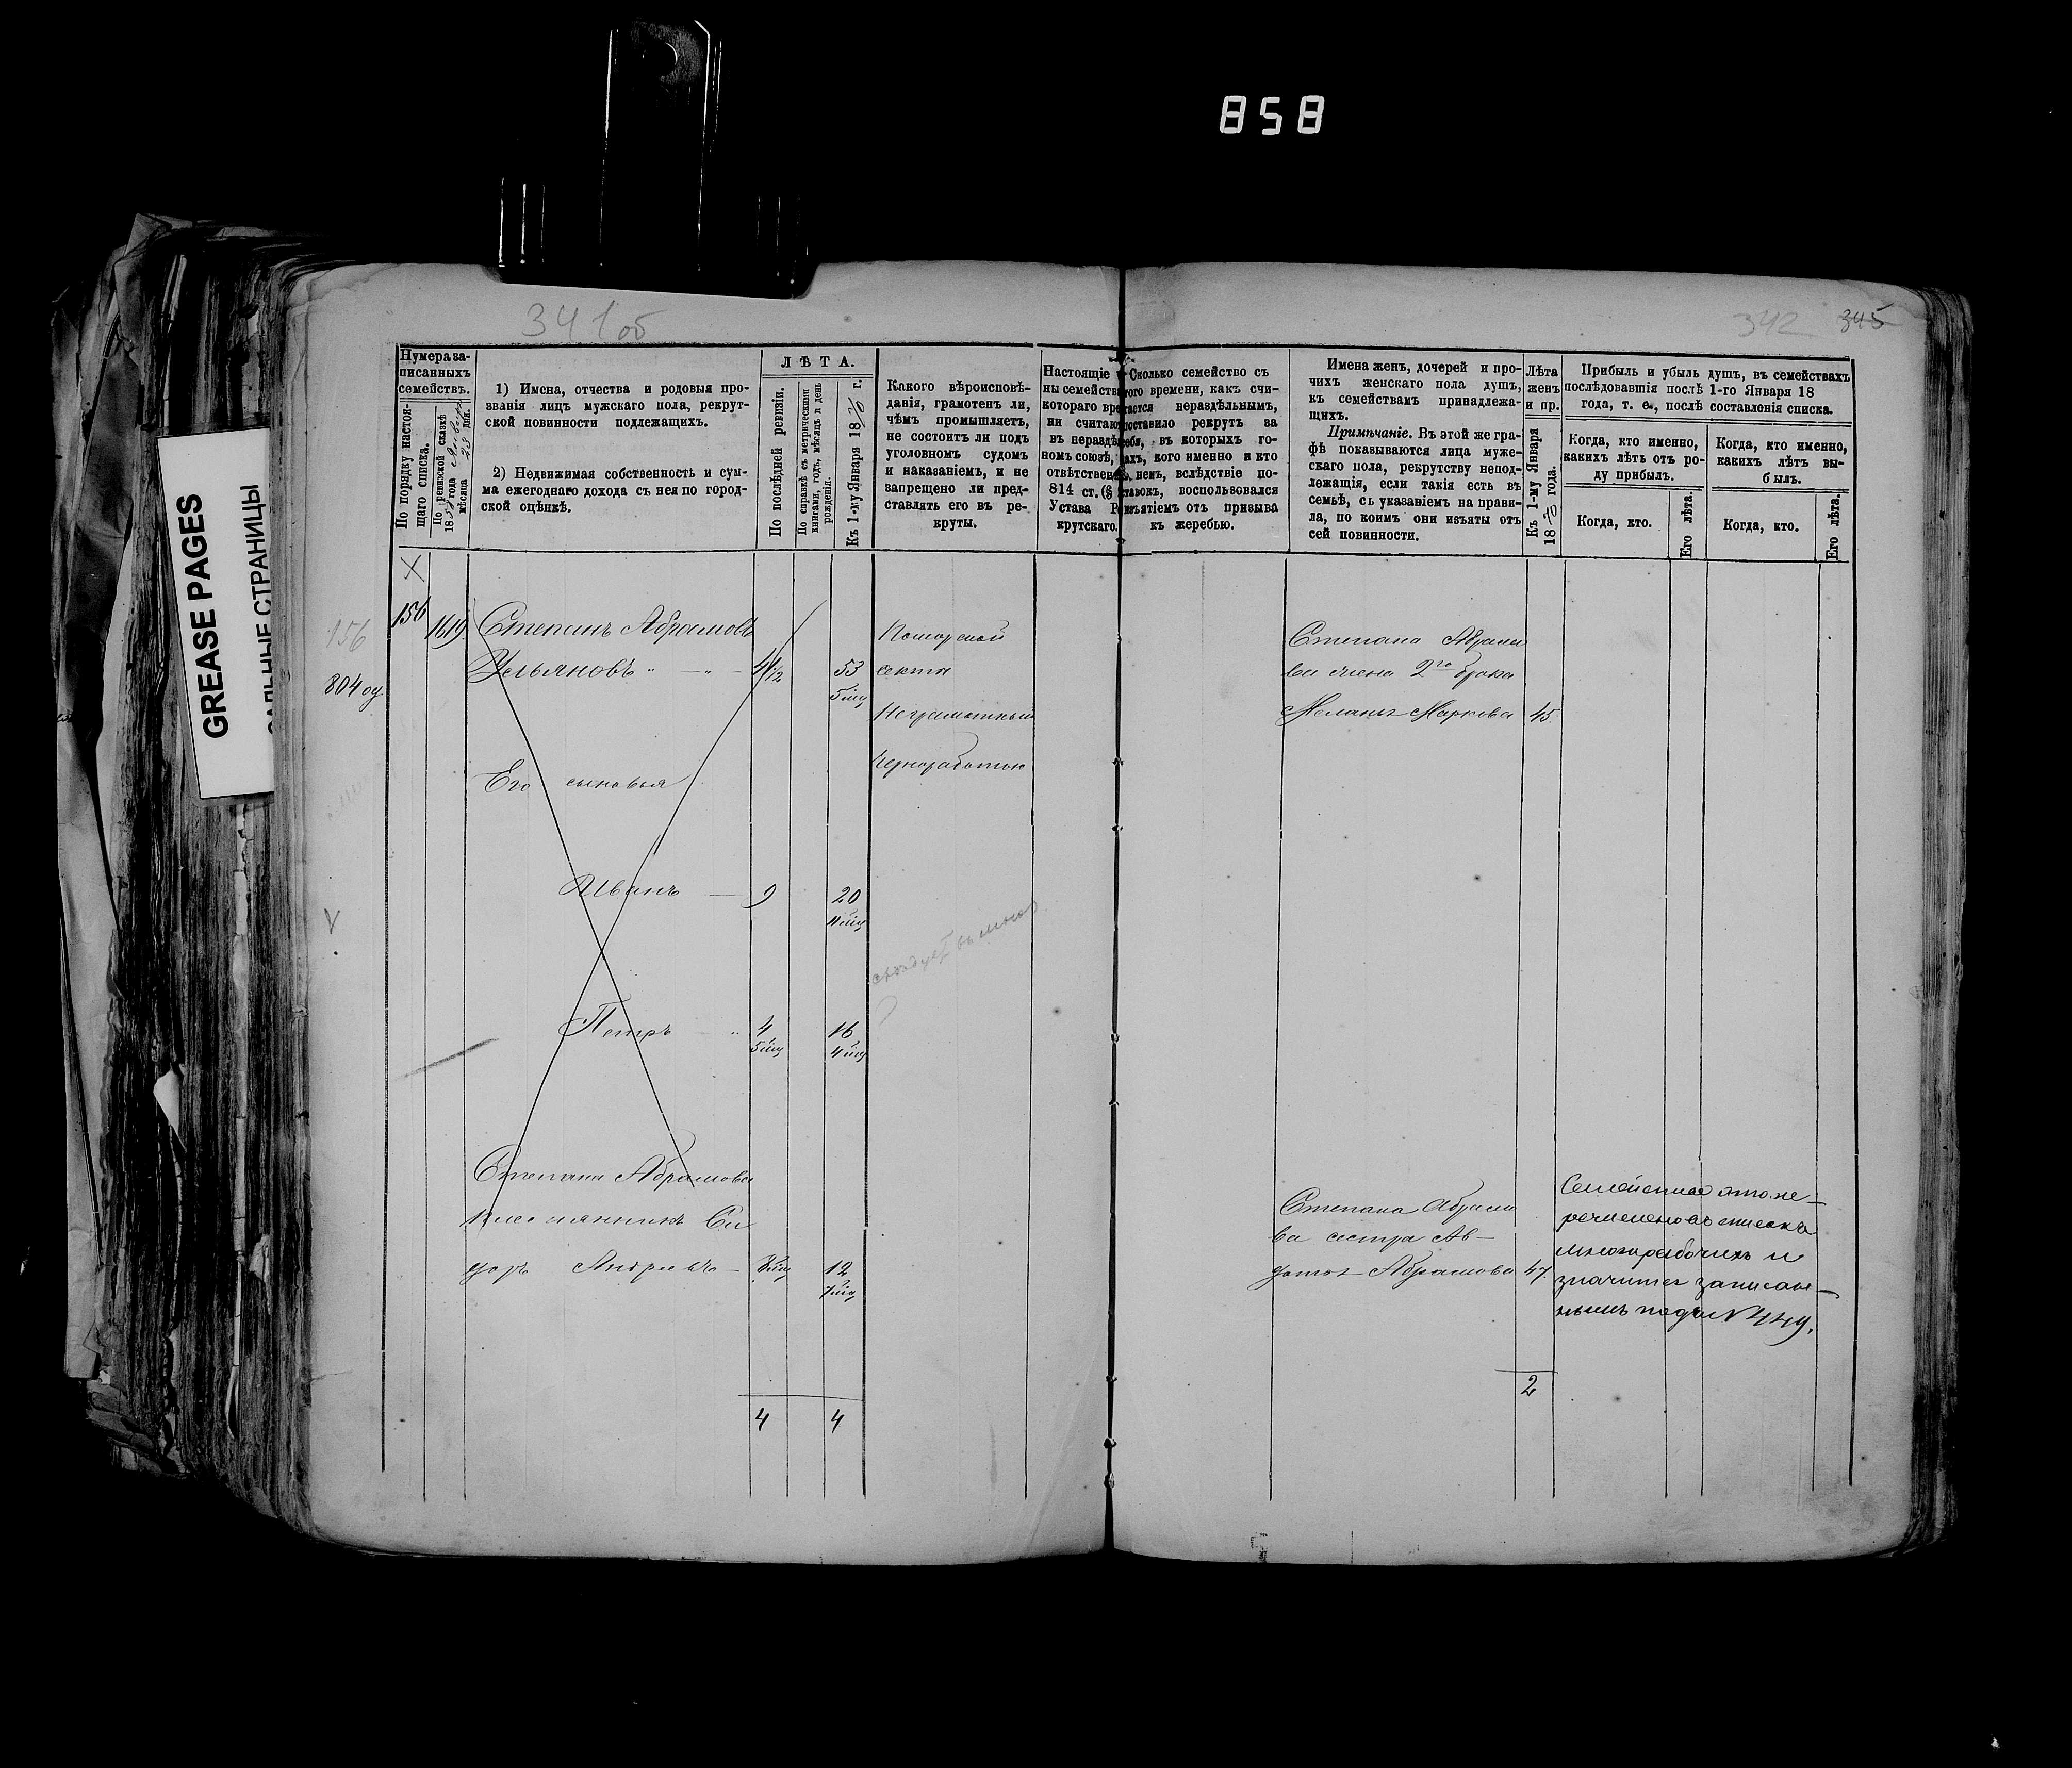 858
GREASE PAGES
САЛЬНЫЕ СТРАНИЦЫ
341 об
342 345
Нумера за-
писанныхъ
семействъ.
По порядку настоя-
щаго списка.
По ревизской сказкѣ
18 года
мѣсяца 28 дня.
1) Имена, отчества и родовыя про-
званія лицъ мужскаго пола, рекрут-
ской повинности подлежащихъ.
2) Недвижимая собственность и сум-
ма ежегоднаго дохода съ нея по город-
ской оцѣнкѣ.
ЛѢТА.
По послѣдней ревизіи.
По справкѣ съ метрическими
книгами, годъ, мѣсяцъ и день
рожденія.
Къ 1-му Января 1870 г.
Какого вѣроисповѣ-
данія, грамотенъ ли,
чѣмъ промышляетъ,
не состоитъ ли подъ
уголовномъ судомъ
и наказаніемъ, и не
запрещено ли пред-
ставлять его въ ре-
круты.
Настоящіе
ны семейства
котораго вре
ни считаю
въ нераздѣ
номъ союзѣ,
отвѣтствен
814 ст. (§
Устава Р
крутскаго.
Сколько семейство съ
того времени, какъ счи-
тается нераздѣльнымъ,
поставило рекрутъ за
себя, въ которыхъ го-
дахъ, кого именно и кто
въ немъ, вслѣдствіе по-
ставокъ, воспользовался
изъятіемъ отъ призыва
къ жеребью.
Имена женъ, дочерей и про-
чихъ женскаго пола душъ,
къ семействамъ принадлежа-
щихъ.
Примѣчаніе. Въ этой же гра-
фѣ показываются лица муже-
скаго пола, рекрутству непод-
лежащія, если такія есть въ
семьѣ, съ указаніемъ на прави-
ла, по коимъ они изъяты отъ
сей повинности.
Лѣта
женъ
и пр.
Къ 1-му Января
1870 года.
Прибыль и убыль душъ, въ семействахъ
послѣдовавшія послѣ 1-го Января 18
года, т. е., послѣ составленія списка.
Когда, кто именно,
какихъ лѣтъ отъ ро-
ду прибылъ.
Когда, кто именно,
какихъ лѣтъ вы-
былъ.
Когда, кто.
Его лѣта.
Когда, кто.
Его лѣта.
156
804 оу.
156 1619 Степанъ Абрамовъ
Ульяновъ 41/2 53
секты
Неграмотный
Чернорабочій
Степана Абрамо
ва жена 2го брака
Меланья Маркова 45.
Его сыновья
Иванъ 9 20
Петръ 4 16
Степана Абрамова
племянникъ Си
доръ Андреевъ 12
Степана Абрамо
ва сестра Ав-
дотья Абрамова 47.
Семейство это пе-
речислено въ списокъ
многорабочихъ и
значится записан-
нымъ подъ №
2
4 4